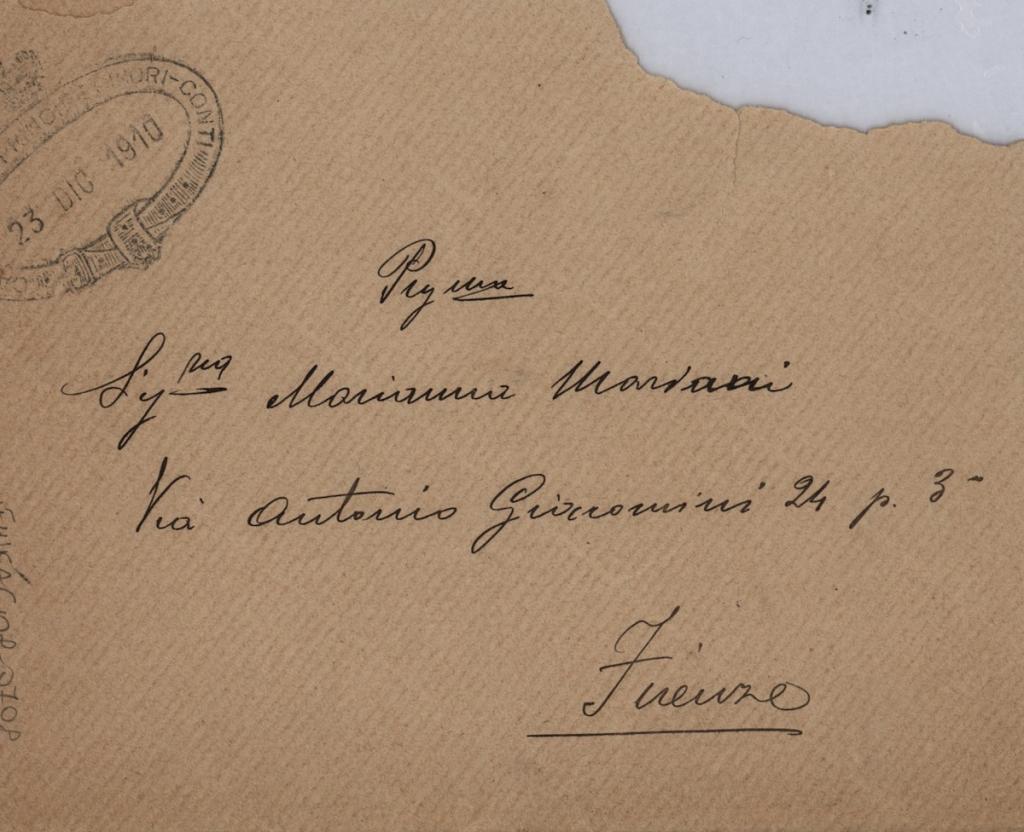 ORI-CONTI
23 DIC 1910
Preg ma
Sig na Marianna Mordani
Via Antonio Giacomini 24 p. 3
Firenze